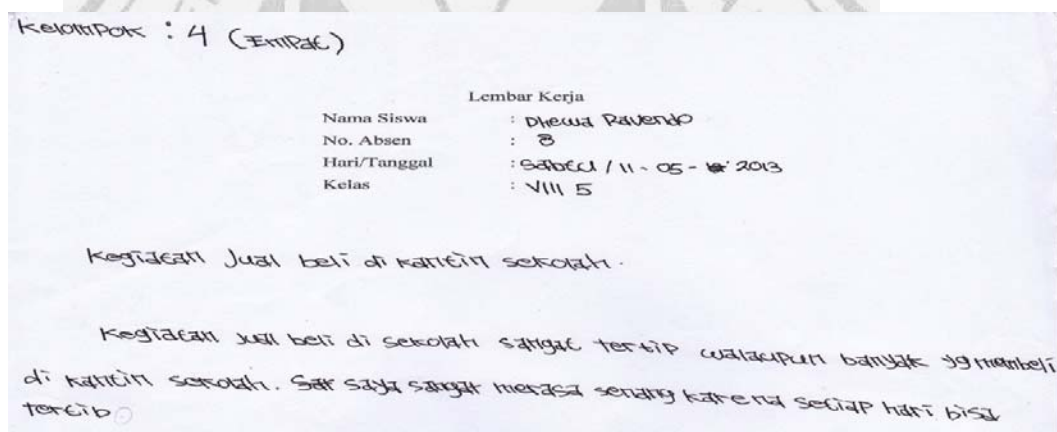 Kelompok : 4 (Empat)
Lembar Kerja
Nama Siswa : Dhewa Ravendo
No. Absen : 8
Hari/Tanggal : Sabtu / 11 - 05 - 2013
Kelas : VIII 5
Kegiatan Jual beli di kantin sekolah.
Kegiatan jual beli di sekolah sangat tertip walaupun banyak yg membeli
di kantin sekolah. Saya sangat merasa senang karena setiap hari bisa
tertib